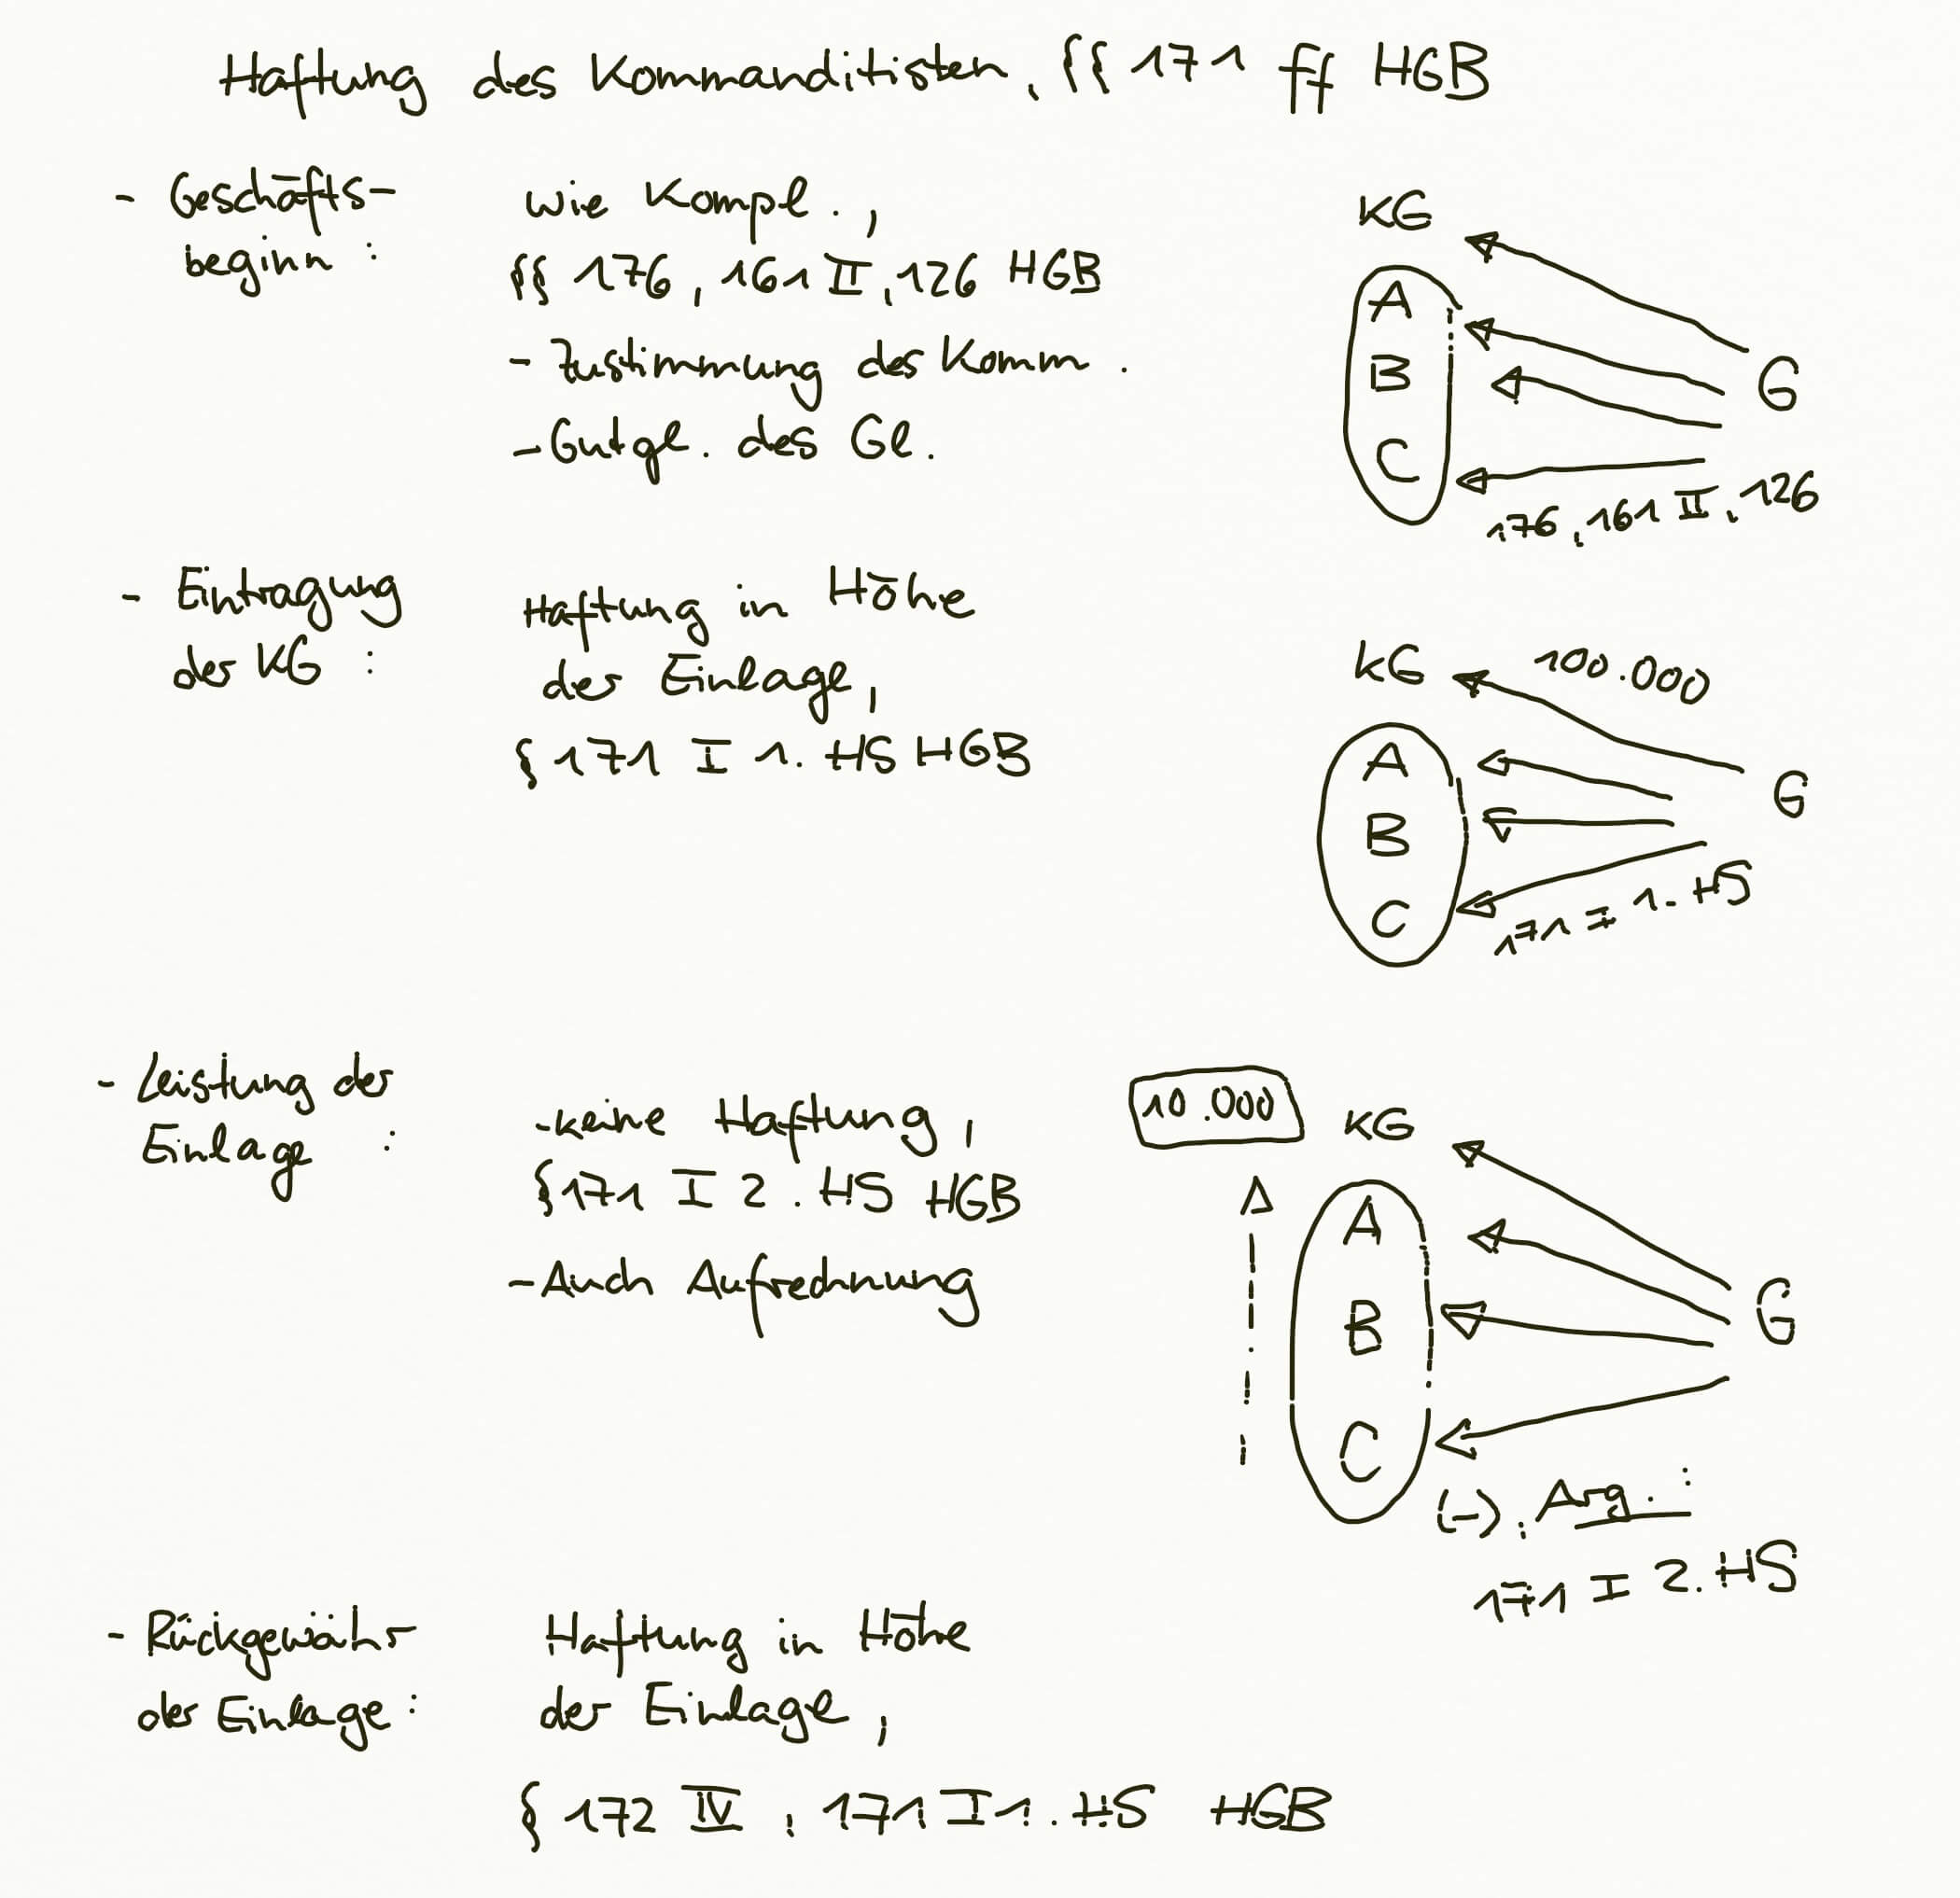 Haftung des Kommanditisten, §§ 171 ff HGB
- Geschäfts-
beginn :
wie Kompl.,
§§ 176, 161 II, 126 HGB
- Zustimmung des Komm.
- Gutgl. des Gl.
KG
A
B
C
G
176, 161 II, 126
- Eintragung
der KG :
Haftung in Höhe
der Einlage,
§ 171 I 1. HS HGB
KG
100.000
A
B
C
G
171 I 1. HS
- Leistung der
Einlage :
- keine Haftung,
§ 171 I 2. HS HGB
- Auch Aufrechnung
10.000
KG
A
B
C
G
(-), Arg.:
171 I 2. HS
- Rückgewähr
der Einlage :
Haftung in Höhe
der Einlage,
§ 172 IV, 171 I 1. HS HGB